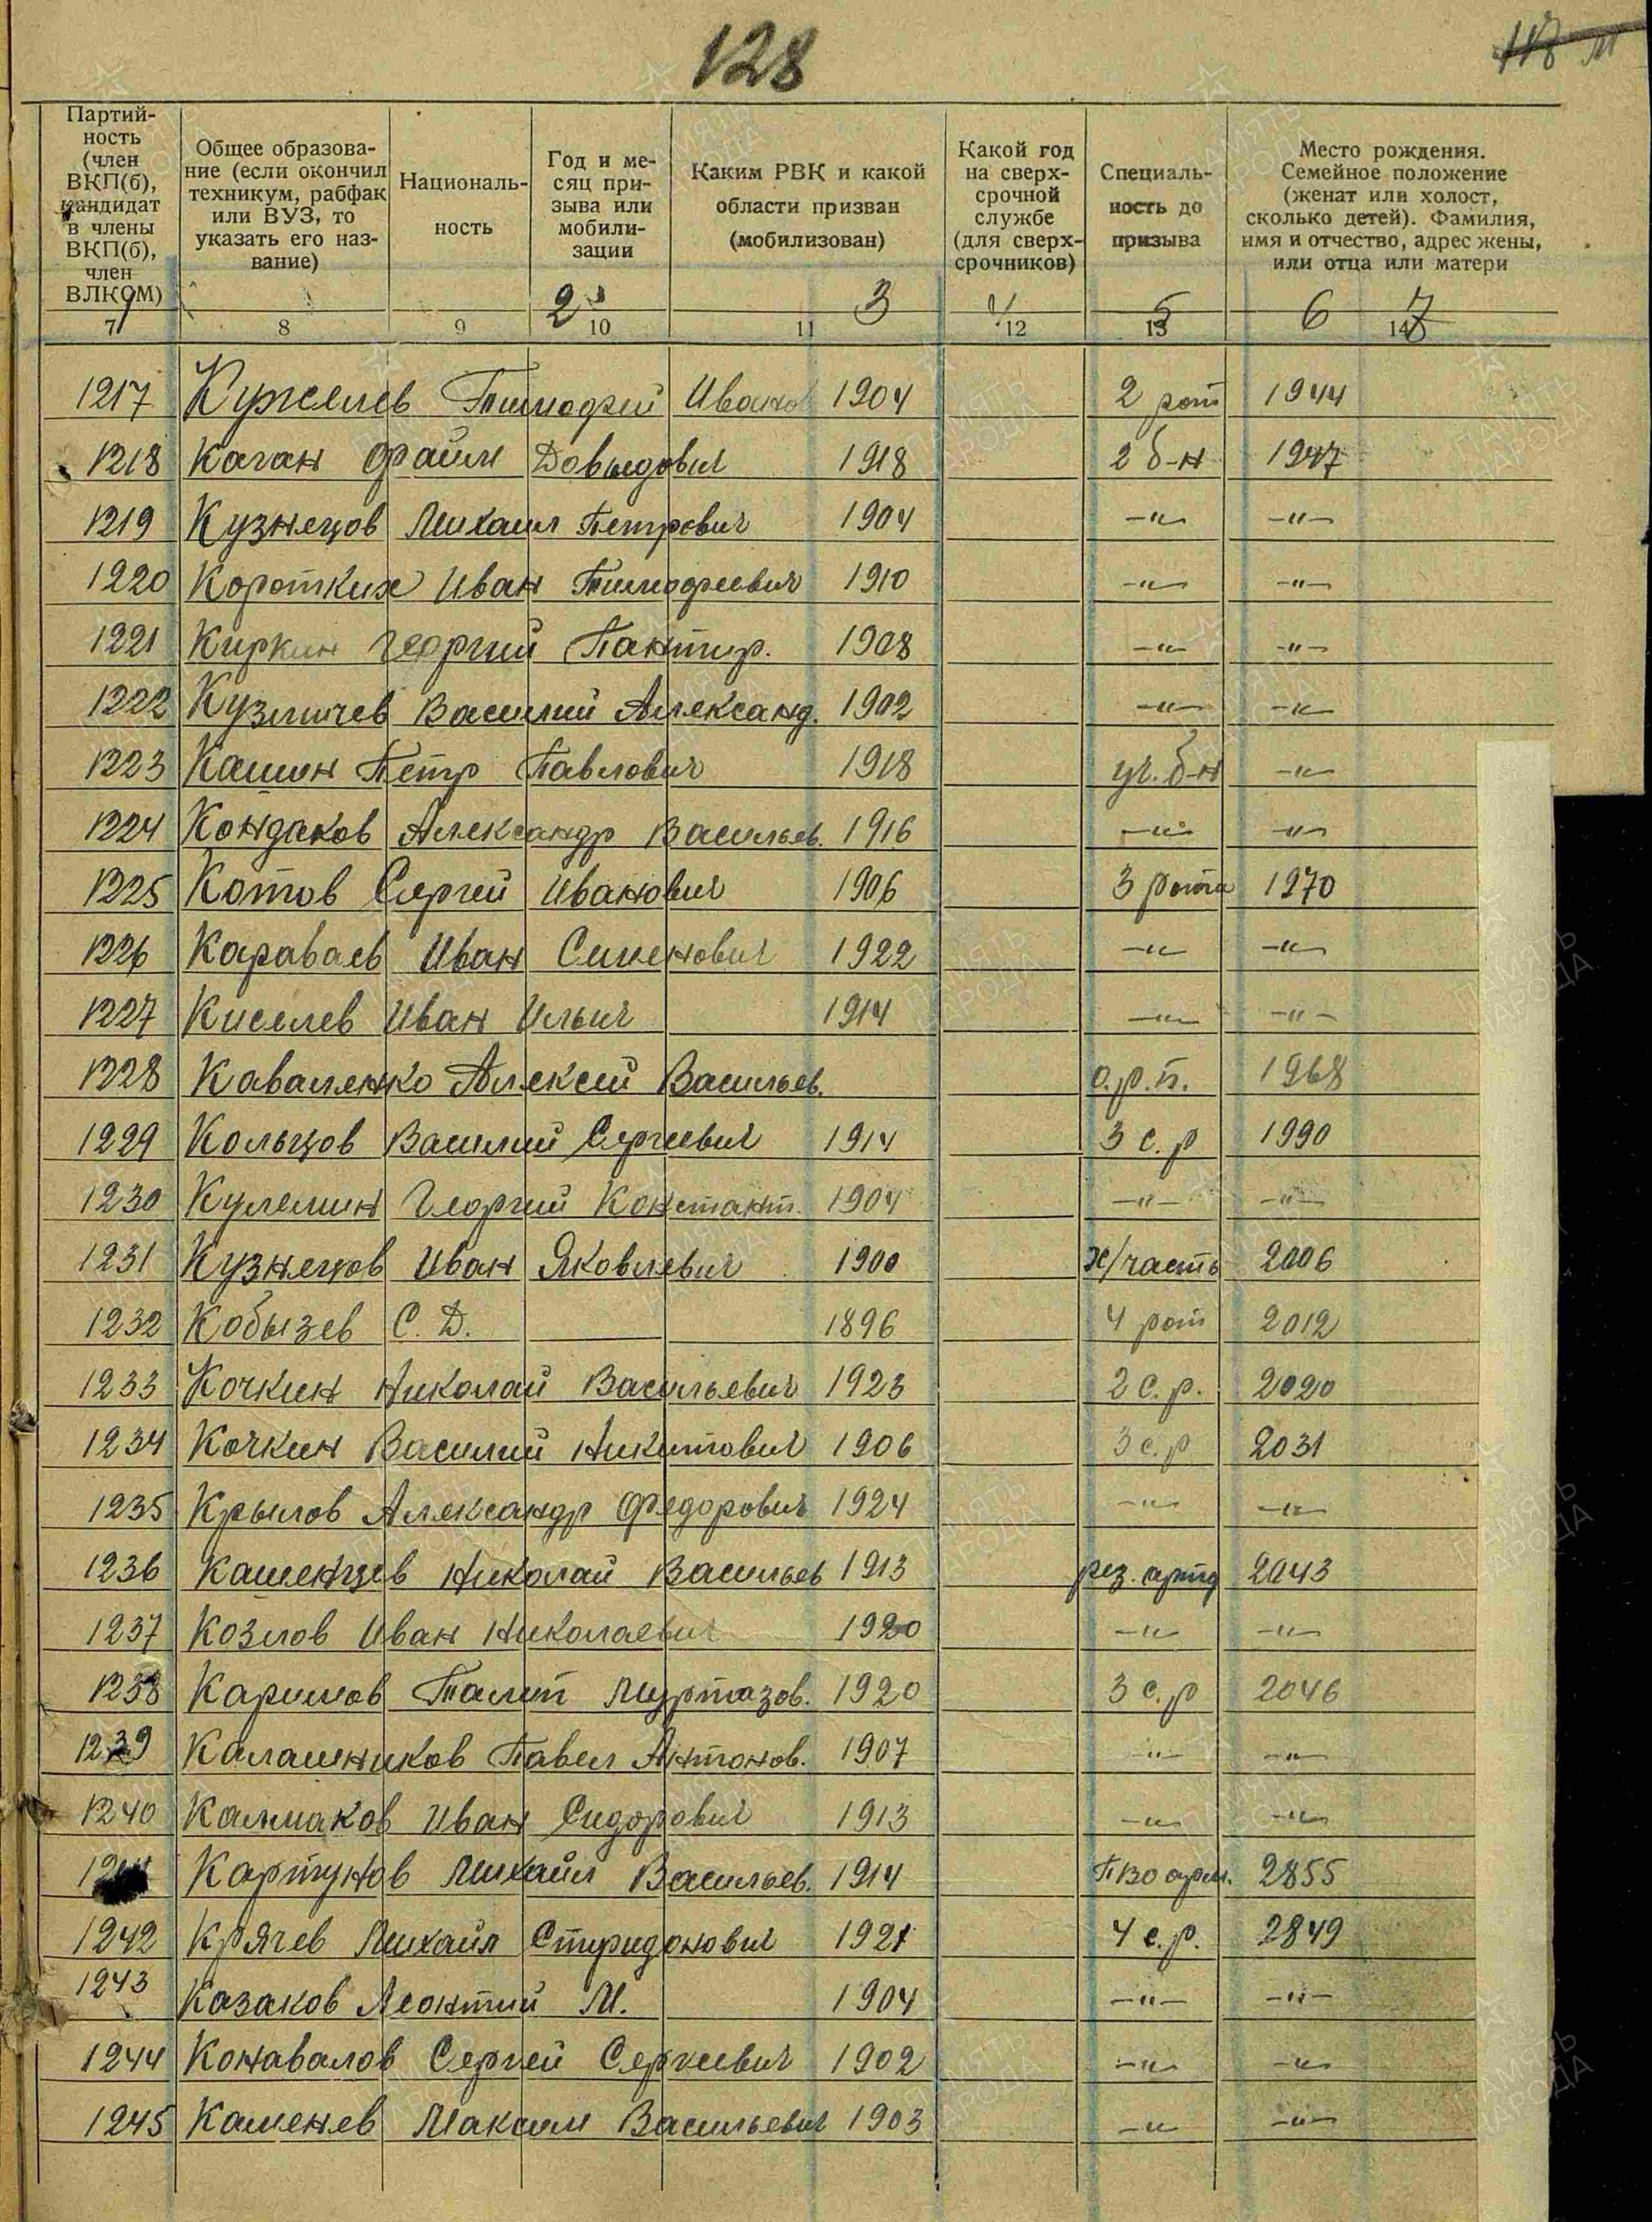 128
118
Партий-
ность
(член
ВКП(б),
кандидат
в члены
ВКП(б),
член
ВЛКСМ)
Общее образова-
ние (если окончил
техникум, рабфак
или ВУЗ, то
указать его наз-
вание)
Националь-
ность
Год и ме-
сяц при-
зыва или
мобили-
зации
Каким РВК и какой
области призван
(мобилизован)
Какой год
на сверх-
срочной
службе
(для сверх-
срочников)
Специаль-
ность до
призыва
Место рождения.
Семейное положение
(женат или холост,
сколько детей). Фамилия,
имя и отчество, адрес жены,
или отца или матери
1 2 3 4 5 6 7
7 8 9 10 11 12 13 14
1217 Кужелев Тимофей Ивано 1904 2 рот 1944
1218 Каган Файм Довыдович 1918 2 б-н 1947
1219 Кузнецов Михаил Петрович 1904 -"- -"-
1220 Коротких Иван Тимофеевич 1910 -"- -"-
1221 Киркин Георгий Пантир. 1908 -"- -"-
1222 Кузмичев Василий Александ. 1902 -"- -"-
1223 Кашин Петр Павлович 1918 уч. б-н -"-
1224 Кондаков Александр Васильев. 1916 -"- -"-
1225 Котов Сергей Иванович 1906 3 рота 1970
1226 Караваев Иван Сименович 1922 -"- -"-
1227 Киселев Иван Ильич 1914 -"- -"-
1228 Каваленко Алексей Васильев. о.р.п. 1968
1229 Кольцов Василий Сергеевич 1914 3 с.р 1990
1230 Кулемин Георгий Констант. 1904 -"- -"-
1231 Кузнецов Иван Яковлевич 1900 х/часть 2006
1232 Кобызев С. Д. 1896 4 рот 2012
1233 Кочкин Николай Васильевич 1923 2 с.р. 2020
1234 Кочкин Василий Никитович 1906 3 с.р 2031
1235 Крылов Александр Федорович 1924 -"- -"-
1236 Кашенцев Николай Васильев 1913 рез. 2043
1237 Козлов Иван Николаевич 1920 -"- -"-
1238 Каримов Талип Муртазов. 1920 3 с.р 2046
1239 Калашников Павел Антонов. 1907 -"- -"-
1240 Калмаков Иван Сидорович 1913 -"- -"-
Картунов Михаил Васильев. 1914 ПВО арм. 2855
1242 Крячев Михаил Спиридонович 1921 4 с.р. 2849
1243 Казаков Леонтий М. 1904 -"- -"-
1244 Конавалов Сергей Сергеевич 1902 -"- -"-
1245 Каменев Максим Васильевич 1903 -"- -"-